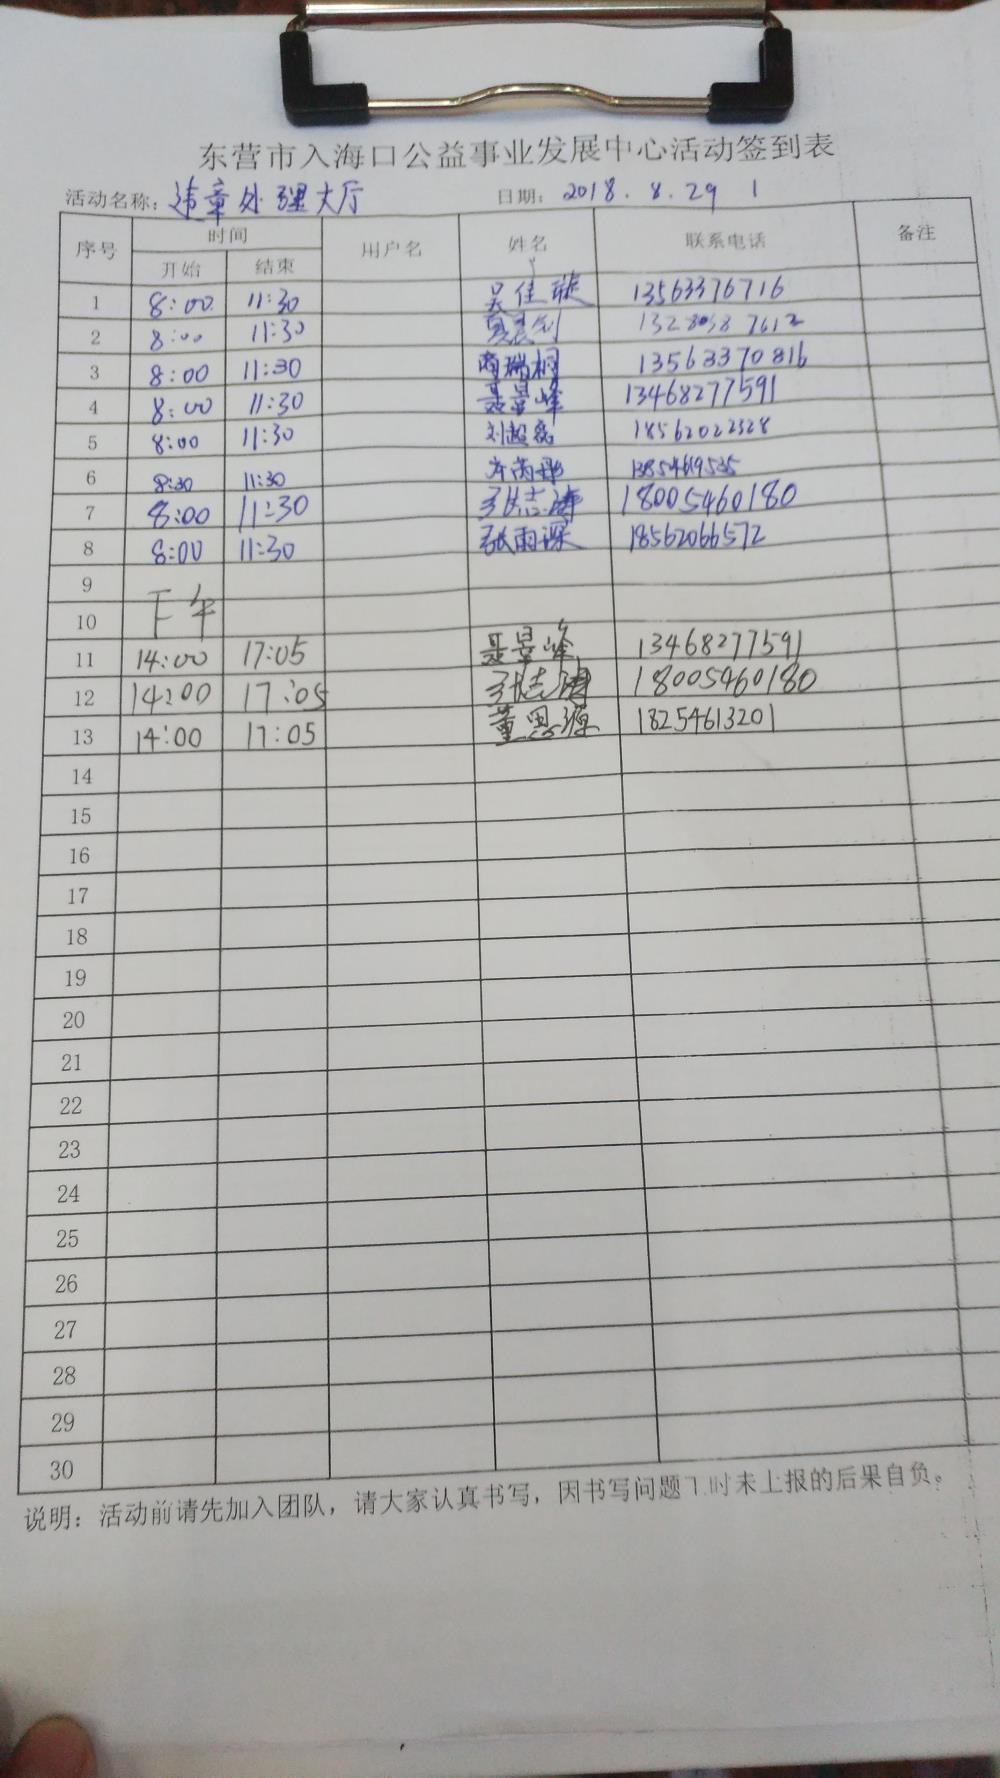 东营市入海口公益事业发展中心活动签到表
活动名称：违章处理大厅 日期：2018.8.29
序号 时间 用户名 姓名 联系电话 备注
开始 结束
1 8:00 11:30 吴佳璇 13563376716
2 8:00 11:30
3 8:00 11:30 商瑞桐 13563370816
4 8:00 11:30 聂景峰 13468277591
5 8:00 11:30 刘超磊 18562022328
6 8:30 11:30
7 8:00 11:30 张志涛 18005460180
8 8:00 11:30 张雨深 18562066572
9
10 下午
11 14:00 17:05 聂景峰 13468277591
12 14:00 17:05 张志涛 18005460180
13 14:00 17:05 董恩源 18254613201
14
15
16
17
18
19
20
21
22
23
24
25
26
27
28
29
30
说明：活动前请先加入团队，请大家认真书写，因书写问题时未上报的后果自负。